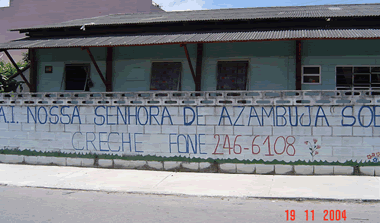 AI. NOSSA SENHORA DE AZAMBUJA SOB
CRECHE FONE 246-6108
19 11 2004